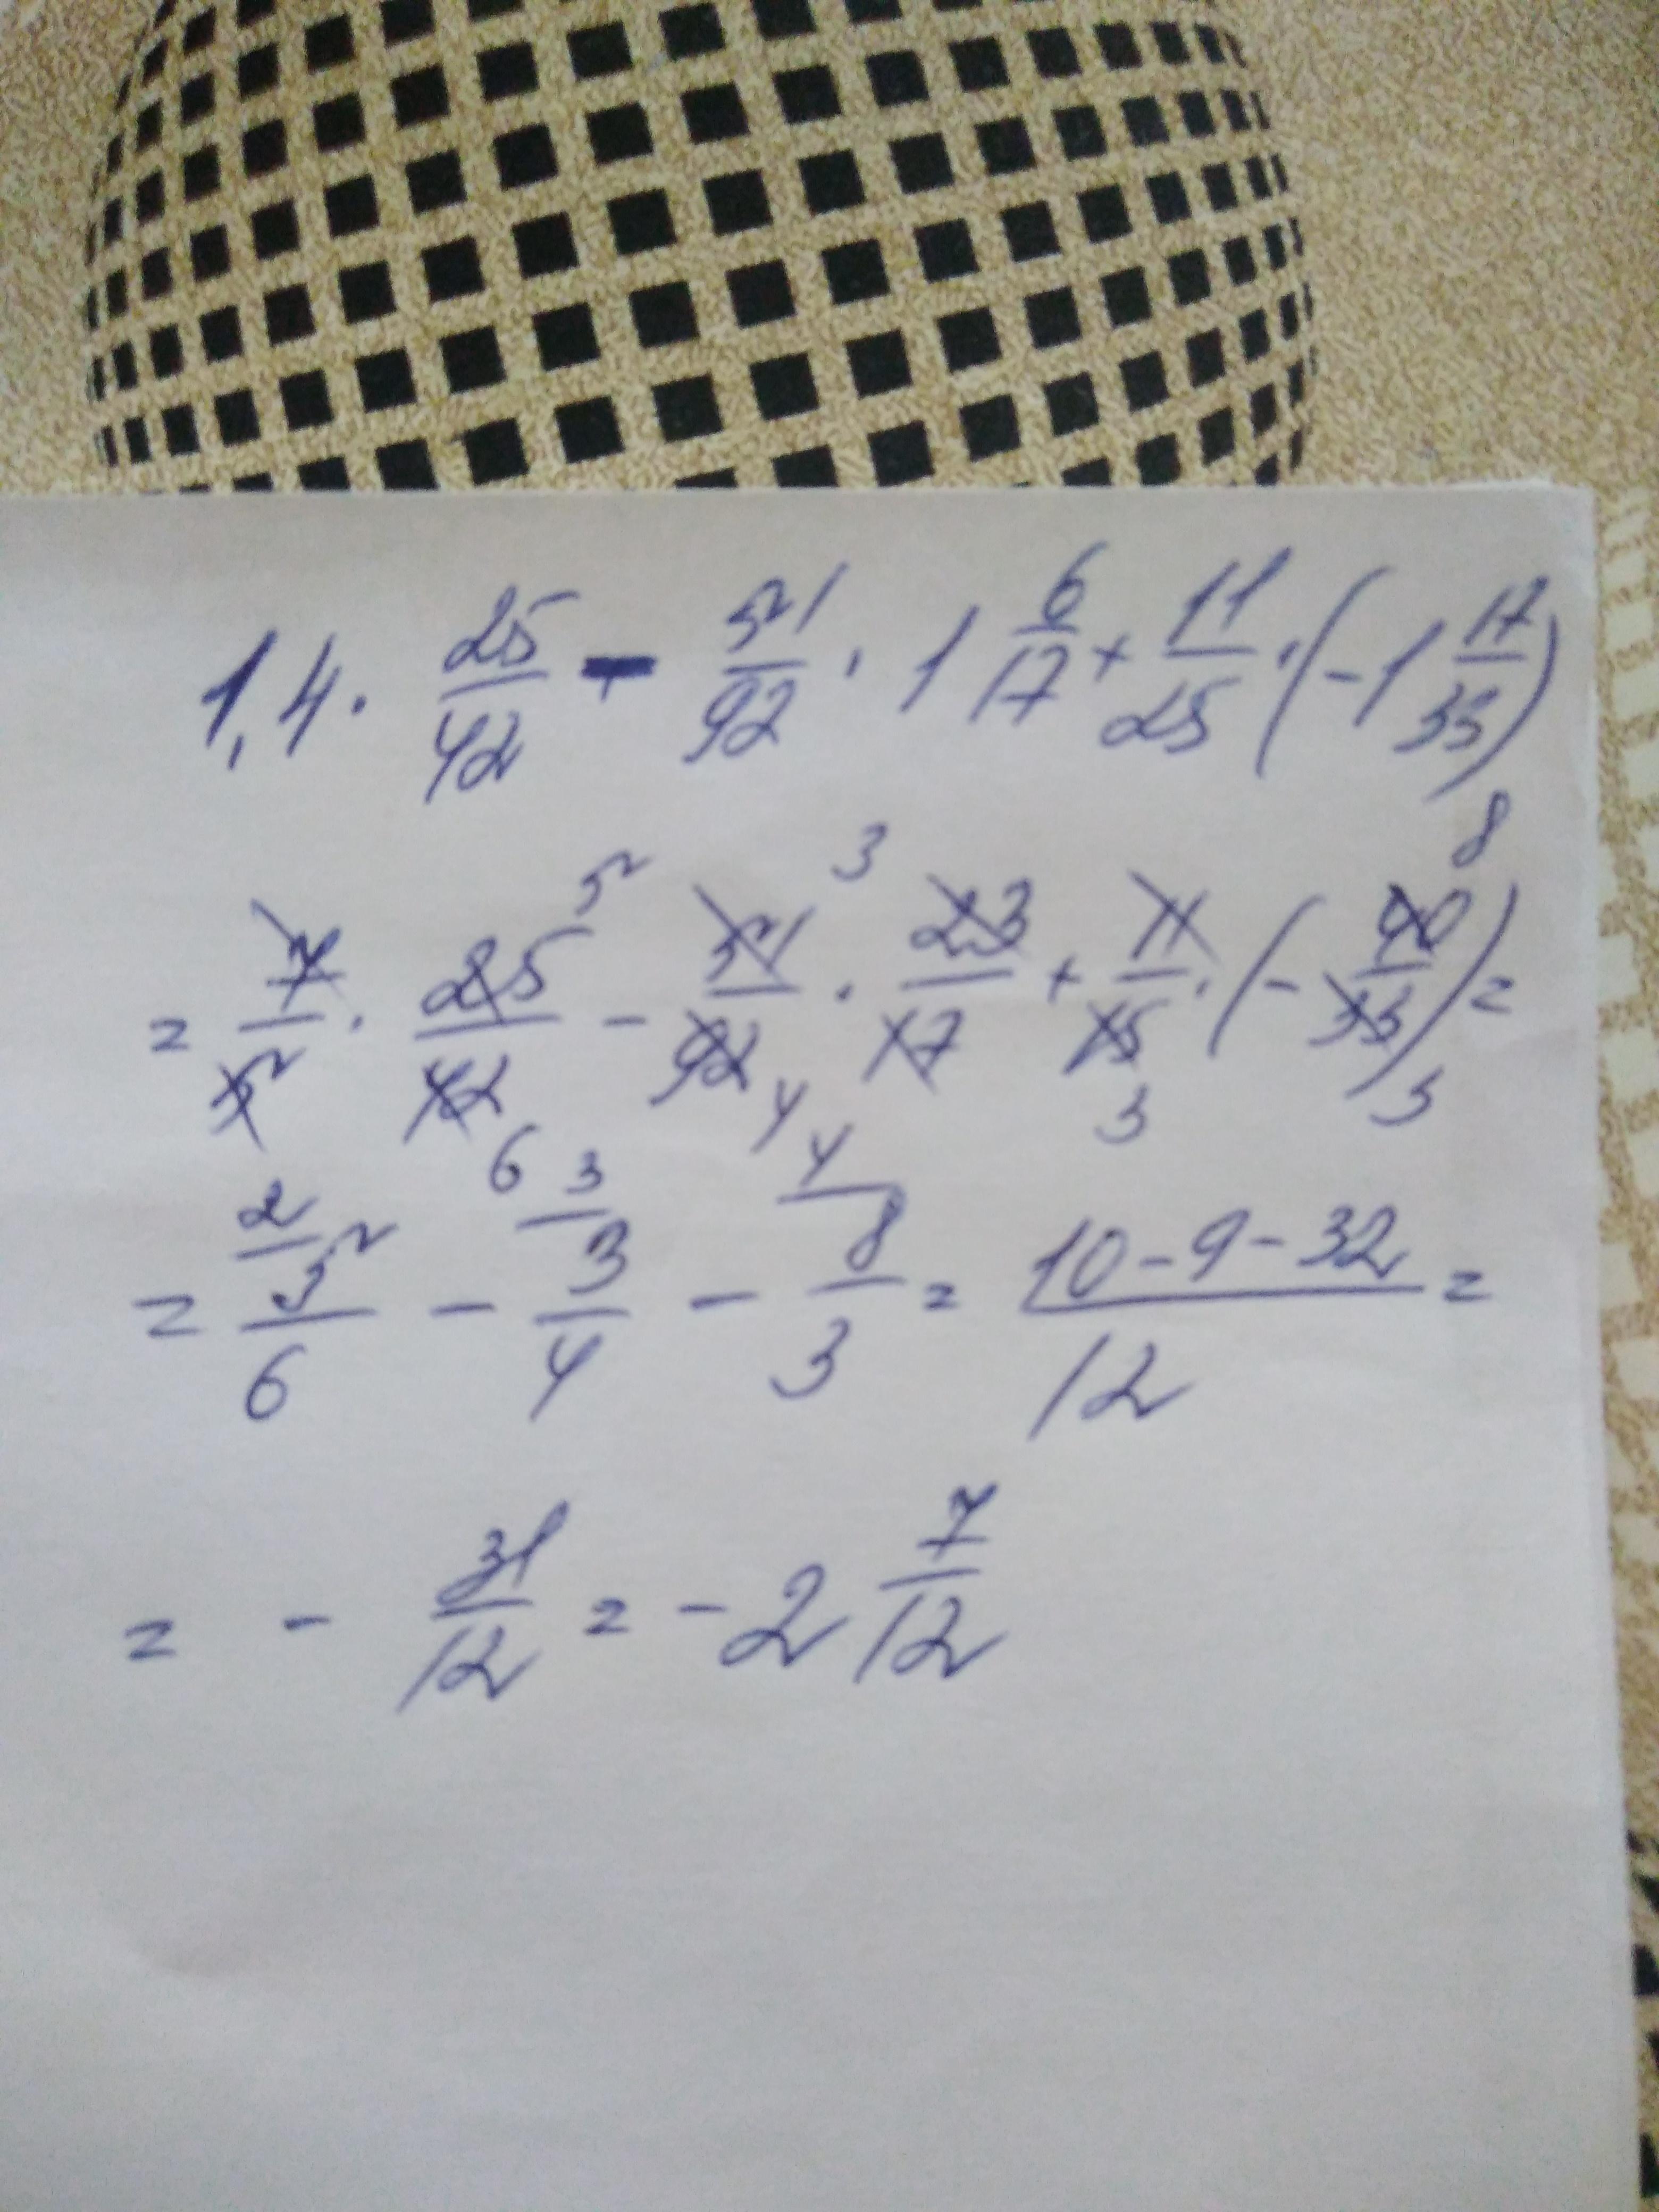 1,4 · 25/42 - 51/92 · 1 6/17 + 11/25 · (-1 17/33)
= 7/5 · 25/42 - 51/92 · 23/17 + 11/15 · (- 40/33) =
= 5/6 - 3/4 - 8/3 = 10-9-32/12 =
= - 31/12 = -2 7/12